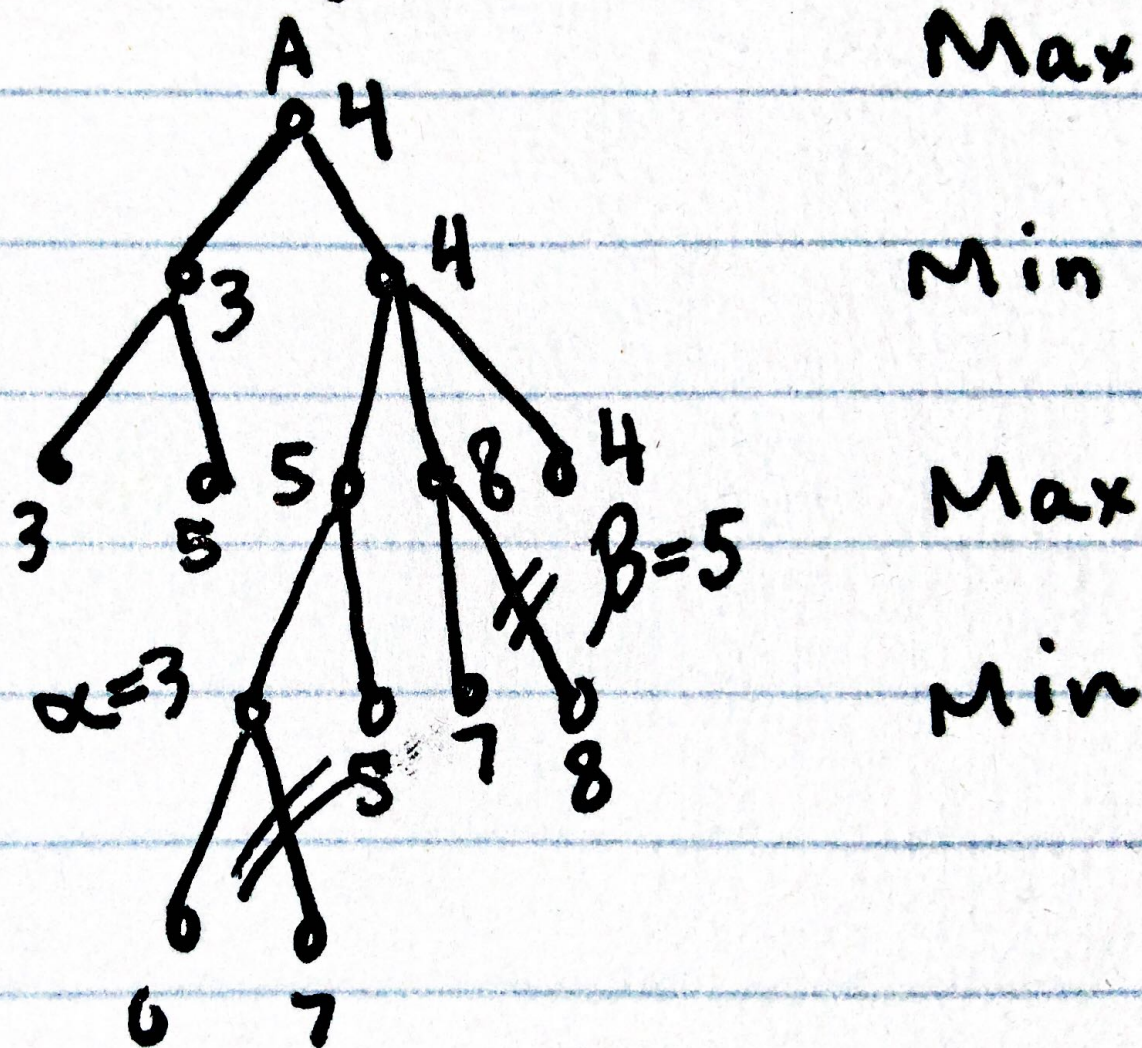 A Max
4
4 Min
3
5 8 4 Max
3 5 β=5
α=3 Min
5 7 8
0 7